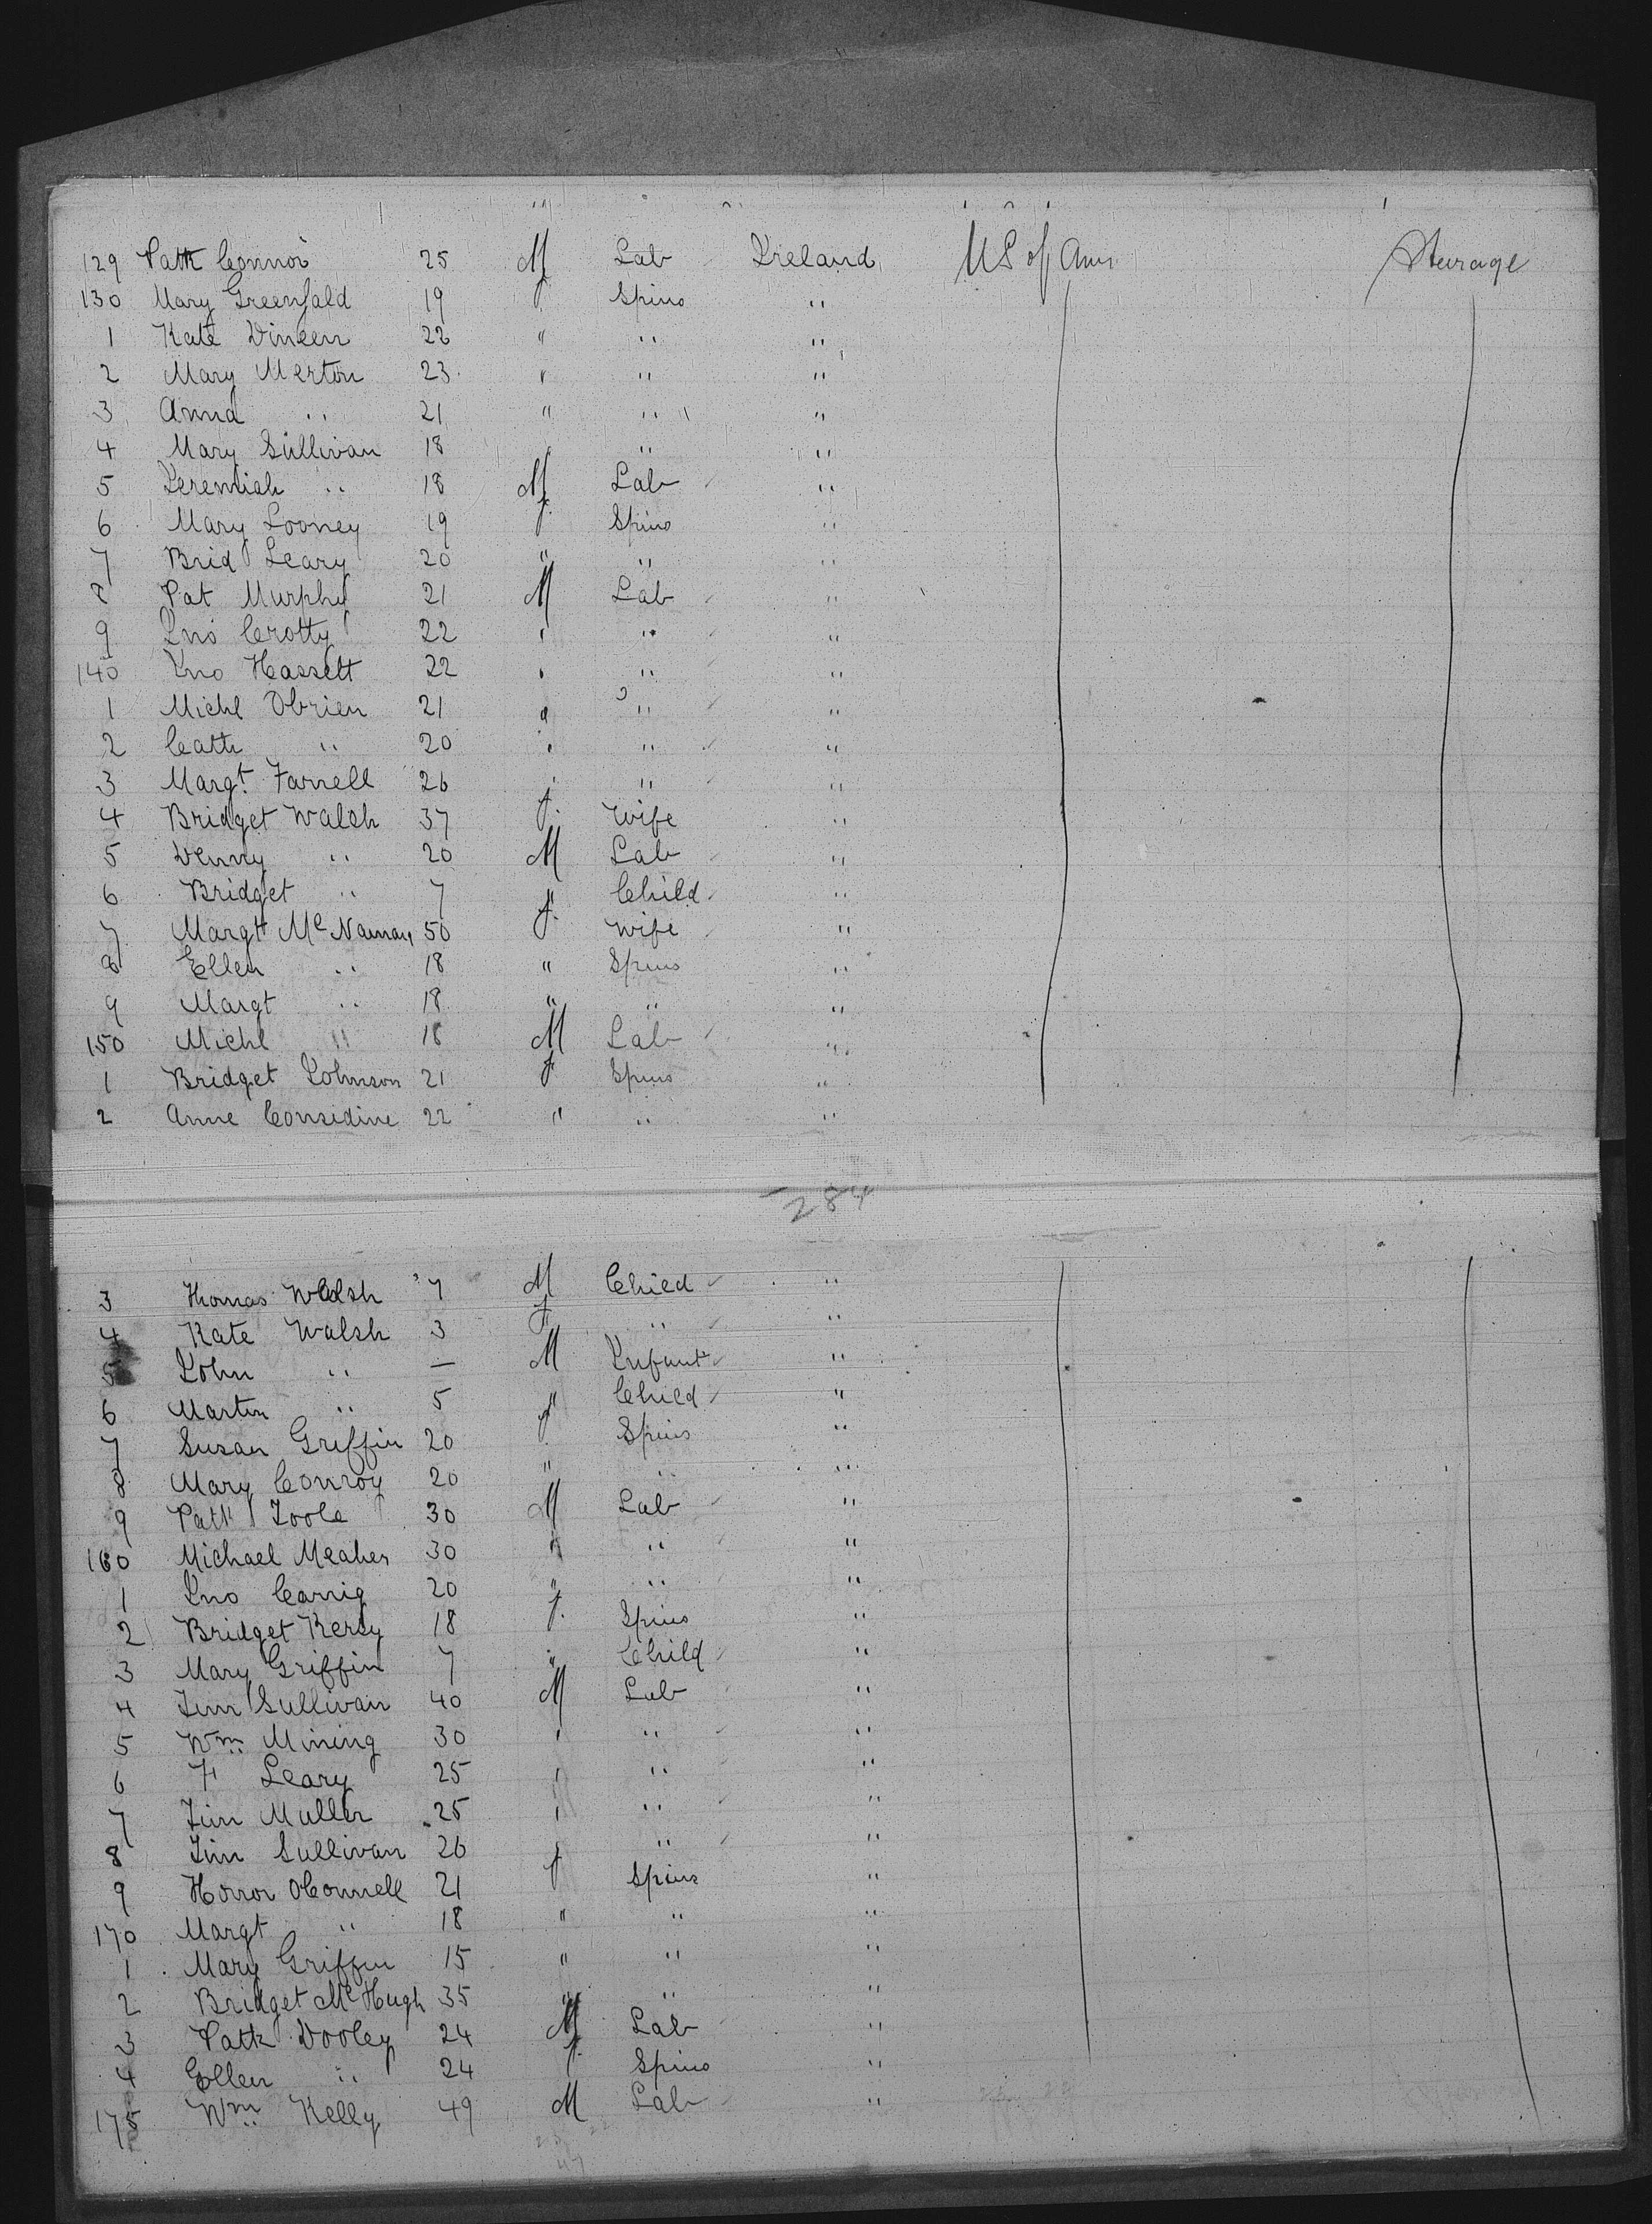 129 Patk Connor 25 M Lab Ireland US of Amer Steerage
130 Mary Greenfald 19 f. Spins "
1 Kate Dineen 22 " " "
2 Mary Merton 23 " " "
3 Anna " 21 " " "
4 Mary Sullivan 18 " " "
5 Jeremiah " 18 M Lab "
6 Mary Looney 19 f. Spins "
7 Brid Leary 20 " " "
8 Pat Murphy 21 M Lab "
9 Jno Crotty 22 " " "
140 Jno Hassett 22 " " "
1 Michl Obrien 21 " " "
2 Cath " 20 " " "
3 Margt Farrell 26 " " "
4 Bridget Walsh 37 f. Wife "
5 Denny " 20 M Lab "
6 Bridget " 7 f Child "
7 Margt Mc Namary 50 f. Wife "
8 Ellen " 18 " Spins "
9 Margt " 18 " " "
150 Michl " 18 M Lab "
1 Bridget Johnson 21 f Spins "
2 Anne Considine 22 " " "
284
3 Thomas Walsh 7 M Child "
4 Kate Walsh 3 f " "
5 John " — M Infant "
6 Martin " 5 " Child "
7 Susan Griffin 20 f Spins "
8 Mary Conroy 20 " " "
9 Patk Toole 30 M Lab "
160 Michael Meaher 30 " " "
1 Jno Carrig 20 " " "
2 Bridget Kersy 18 f. Spins "
3 Mary Griffin 7 " Child "
4 Jim Sullivan 40 M Lab "
5 Wm Mining 30 " " "
6 Leary 25 " " "
7 Jim Muller 25 " " "
8 Jim Sullivan 26 " " "
9 Honor OConnell 21 f Spins "
170 Margt " 18 " " "
1 Mary Griffin 15 " " "
2 Bridget Mc Hugh 35 " " "
3 Patk Dooley 24 M Lab "
4 Ellen " 24 f. Spins "
175 Wm Kelly 49 M Lab "